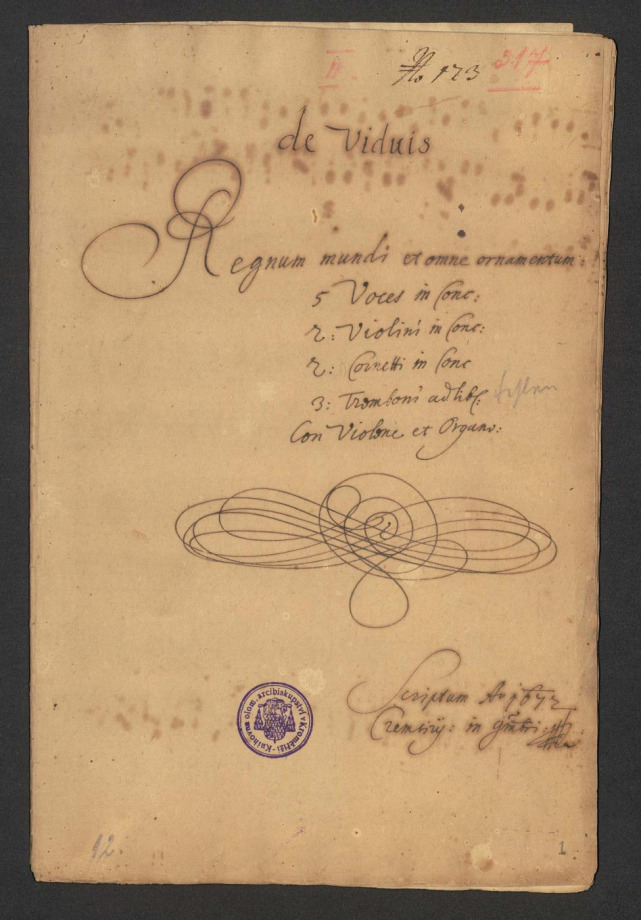 II
No 173
317
de Viduis
Regnum mundi et omne ornamentum:
5 Voces in Conc:
2: Violini in Conc:
2: Cornetti in Conc
3: Tromboni ad lib:
Con Violone et Organo:
Scriptum Ao 1672
Cremsirij: in
Knihovna olom. arcibiskupství v Kroměříži
12.
1